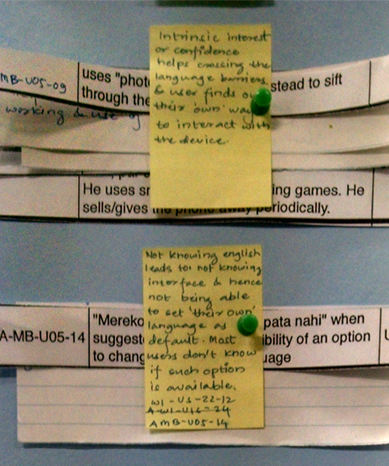 Intrinsic interest
or confidence
helps crossing the
language barriers
& user finds
their 'own' way
to interact with
the device.
MB-U05-09
uses "phot
stead to sift
through the
working & use of
He uses
ing games. He
sells/gives the phone away periodically.
Not knowing english
leads to: not knowing
interface & hence
not being able
to set 'their own'
language as
default. Most
users don't know
if such option
is available.
W1-U3-22-12
AMB-U05-14
A-MB-U05-14
"Mereko
pata nahi" when
suggest
bility of an option
to chang
uage